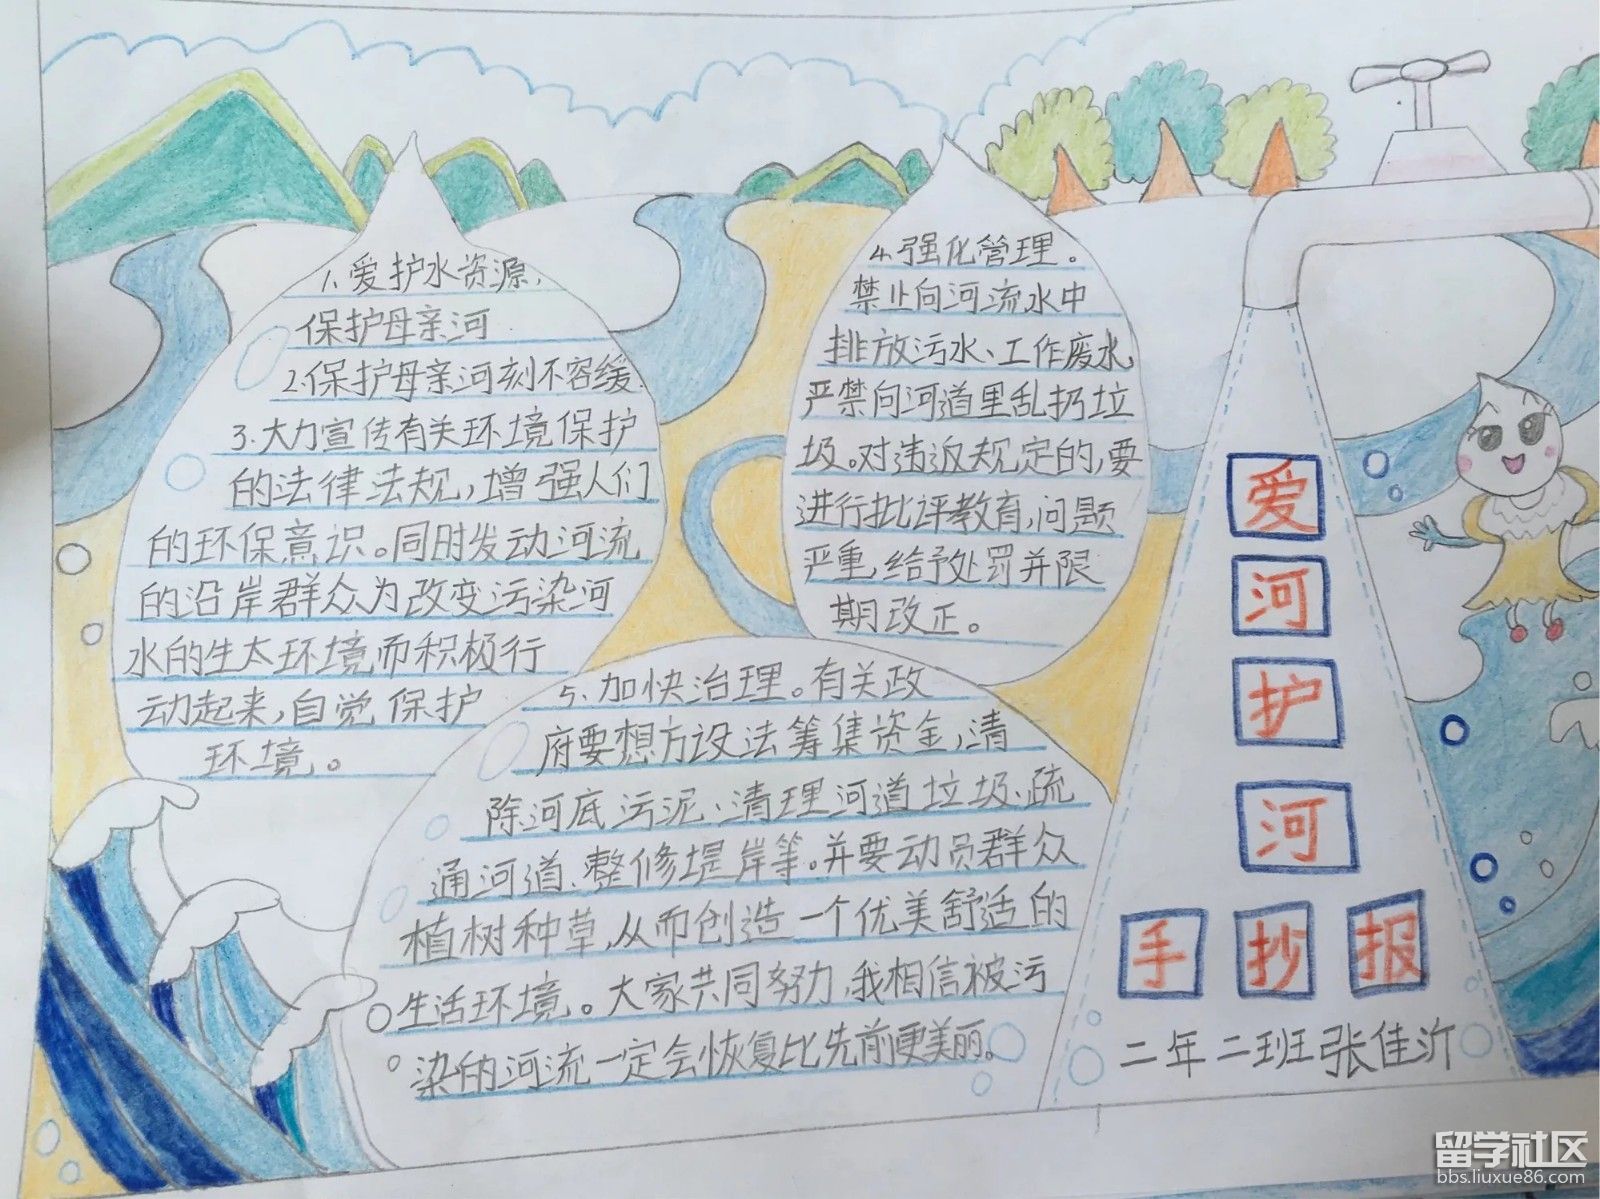 1.爱护水资源，
保护母亲河
2.保护母亲河刻不容缓.
3.大力宣传有关环境保护
的法律法规，增强人们
的环保意识。同时发动河流
的沿岸群众为改变污染河
水的生态环境而积极行
动起来，自觉保护
环境。
4.强化管理。
禁止向河流水中
排放污水、工作废水
严禁向河道里乱扔垃
圾。对违返规定的，要
进行批评教育，问题
严重，给予处罚并限
期改正。
5.加快治理。有关政
府要想方设法筹集资金，清
除河底污泥、清理河道垃圾、疏
通河道、整修堤岸等。并要动员群众
植树种草，从而创造一个优美舒适的
生活环境。大家共同努力，我相信被污
染的河流一定会恢复比先前更美丽。
爱
河
护
河
手抄报
二年二班张佳沂
留学社区
bbs.liuxue86.com